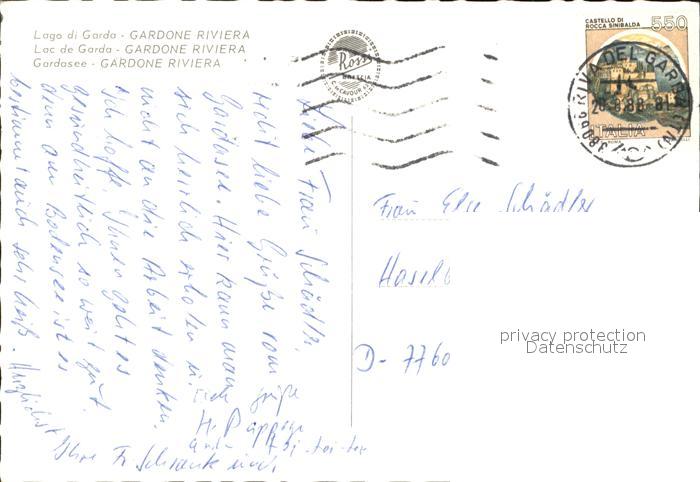 Lago di Garda - GARDONE RIVIERA
Lac de Garda - GARDONE RIVIERA
Gardasee - GARDONE RIVIERA
Rossi
BRESCIA
C. M. CAVOUR
CASTELLO DI
ROCCA SINIBALDA
550
ITALIA
38066 RIVA DEL GARDA (TN)
Liebe Frau Schädler,
recht liebe Grüße vom
Gardasee. Hier kann man
sich herrlich erholen u.
nicht an die Arbeit denken.
Ich hoffe, Ihnen geht es
gesundheitlich so weit gut.
Denn am Bodensee ist es
bestimmt auch sehr heiß. Herzlichst
Ihre Fr. Schrank und
grüße
H. Pappon
Frau Else Schädler
Haselb
D- 7760
privacy protection
Datenschutz